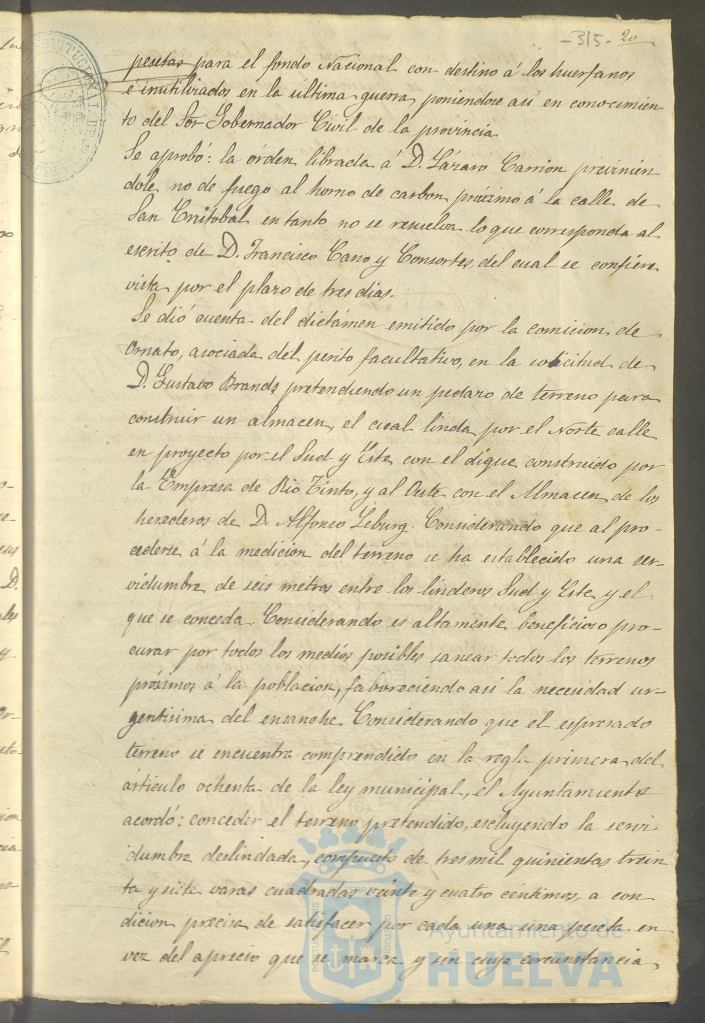 -315- 20
pesetas para el fondo Nacional con destino á los huerfanos
é inutilizados en la última guerra, poniendose asi en conocimien-
to del Sor Gobernador Civil de la provincia.
Se aprobó: la órden librada á D. Lázaro Carrion previnien-
dole no de fuego al horno de carbon próximo á la calle de
San Cristobal en tanto no se resuelva lo que corresponda al
escrito de D. Francisco Cano y Consortes, del cual se confiere
vista por el plazo de tres dias.
Se dió cuenta del dictámen emitido por la comicion de
Ornato, asociada del perito facultativo, en la solicitud de
D. Gustavo Brands pretendiendo un pedazo de terreno para
construir un almacen, el cual linda por el Norte calle
en proyecto por el Sud y Este con el dique construido por
la Empresa de Rio Tinto, y al Oeste con el Almacen de los
herederos de D. Alfonso Leburg. Considerando que al pro-
cederse á la medicion del terreno se ha establecido una ser-
vidumbre de seis metros entre los linderos Sud y Este y el
que se conceda. Considerando es altamente beneficioso pro-
curar por todos los medios posibles sanear todos los terrenos
próximos á la poblacion, faboreciendo asi la necesidad ur-
gentisima del ensanche. Considerando que el espresado
terreno se encuentra comprendido en la regla primera del
árticulo ochenta de la ley municipal, el Ayuntamiento
acordó: conceder el terreno pretendido, escluyendo la servi
dumbre deslindada, compuesto de tres mil quinientas trein
ta y siete varas cuadradas veinte y cuatro céntimos, a con
dicion precisa de satisfacer por cada una una peseta en
vez del aprecio que se marca y sin cuya circunstancia
Ayuntamiento de
HUELVA